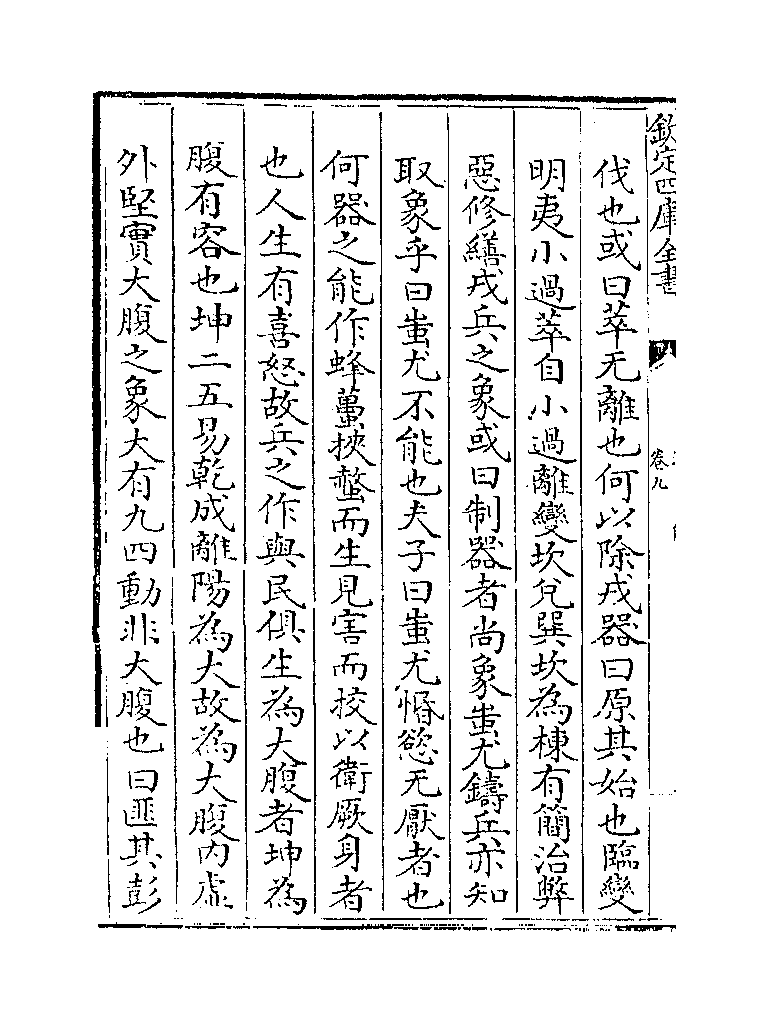 欽定四庫全書
卷九
伐也或曰萃无離也何以除戎器曰原其始也臨變
明夷小過萃自小過離變坎兌巽坎為棟有簡治弊
惡修繕戎兵之象或曰制器者尚象蚩尤鑄兵亦知
取象乎曰蚩尤不能也夫子曰蚩尤惛慾无厭者也
何器之能作蜂蠆挾螫而生見害而挍以衛厥身者
也人生有喜怒故兵之作與民俱生為大腹者坤為
腹有容也坤二五易乾成離陽為大故為大腹內虛
外堅實大腹之象大有九四動非大腹也曰匪其彭